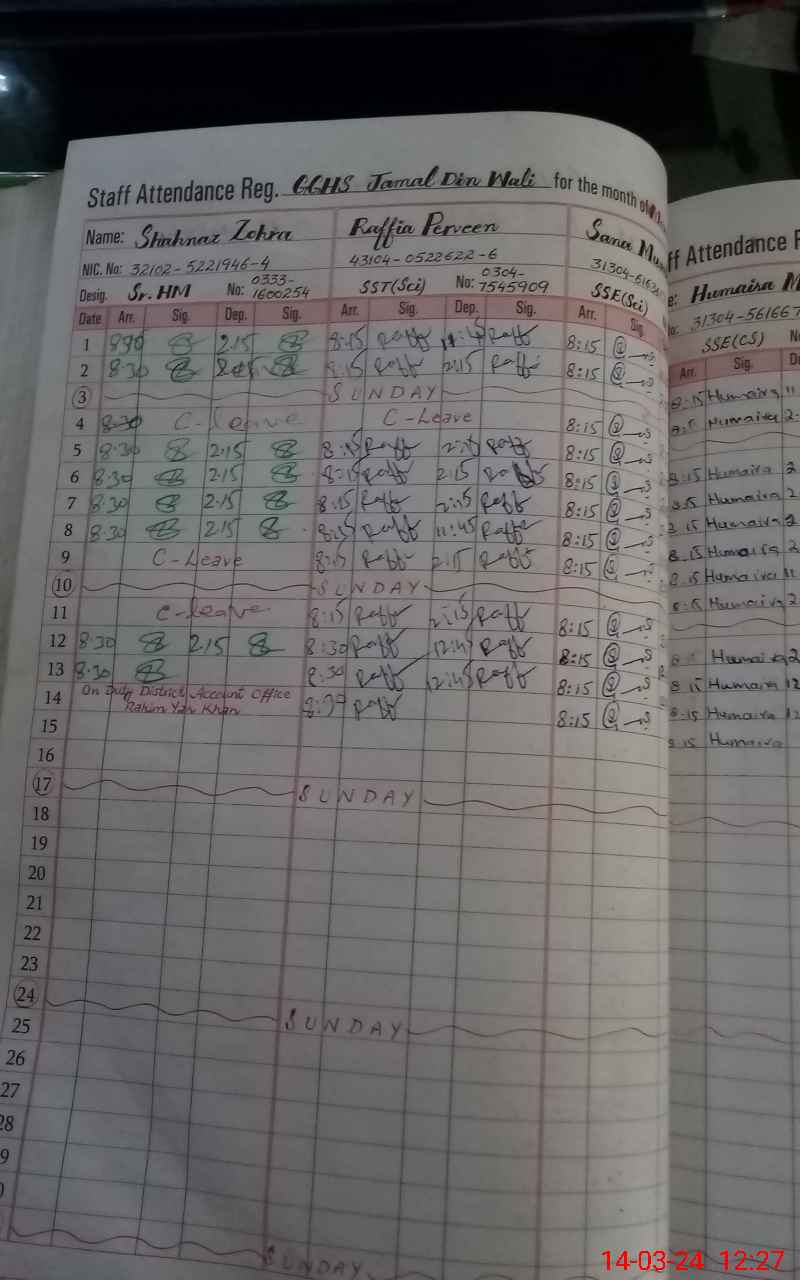 Staff Attendance Reg. GGHS Jamal Din Wali for the month of
Name: Shahnaz Zohra Raffia Perveen Sana
NIC. No: 32102-5221946-4 43104-0522622-6 31304-
Desig. Sr. HM No: 0333-1600254 SST(Sci) No: 0304-7545909 SSE(Sci)
Date Arr. Sig. Dep. Sig. Arr. Sig. Dep. Sig. Arr. Sig.
1 8:30 2.15 8:15 Raff Raff 8:15
2 8:30 8:15 Raff 2:15 Raff 8:15
3 SUNDAY
4 8:30 C-leave C-Leave 8:15
5 8:30 2.15 8:15 Raff 2:15 Raff 8:15
6 8:30 2.15 8:15 Raff 2:15 8:15
7 8:30 2.15 8:15 Raff 2:15 Raff 8:15
8 8:30 2.15 Raff 11:45 Raff 8:15
9 C-Leave 8:15 Raff 2:15 Raff 8:15
10 SUNDAY
11 C-leave 8:15 Raff 2:15 Raff 8:15
12 8:30 2.15 8:30 Raff 12:45 Raff 8:15
13 8:30 8:30 Raff 12:45 Raff 8:15
14 On Duty District Account Office Rahim Yar Khan 8:30 Raff 8:15
15
16
17 SUNDAY
18
19
20
21
22
23
24 SUNDAY
25
26
27
28
9
SUNDAY
ff Attendance
e: Humaira
31304-56166
SSE(CS)
Arr. Sig.
8:15 Humaira
Humaira 2
8:15 Humaira 2
Humaira 2
8:15 Humaira 2
8:15 Humaira 2
8:15 Humaira 11
8:15 Humaira 2
Humaira 2
8:15 Humaira 12
8:15 Humaira 12
8:15 Humaira
14-03-24 12:27